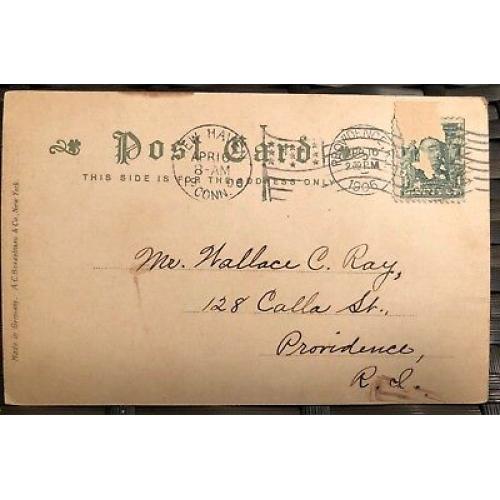 Post Card
THIS SIDE IS FOR THE ADDRESS ONLY
NEW HAVEN
APR 16
8-AM
1906
CONN.
PROVIDENCE
2:30 PM
1906
Mr. Wallace C. Ray,
128 Calla St.,
Providence,
R.I.
Made in Germany. A.C. Bosselman & Co., New York.